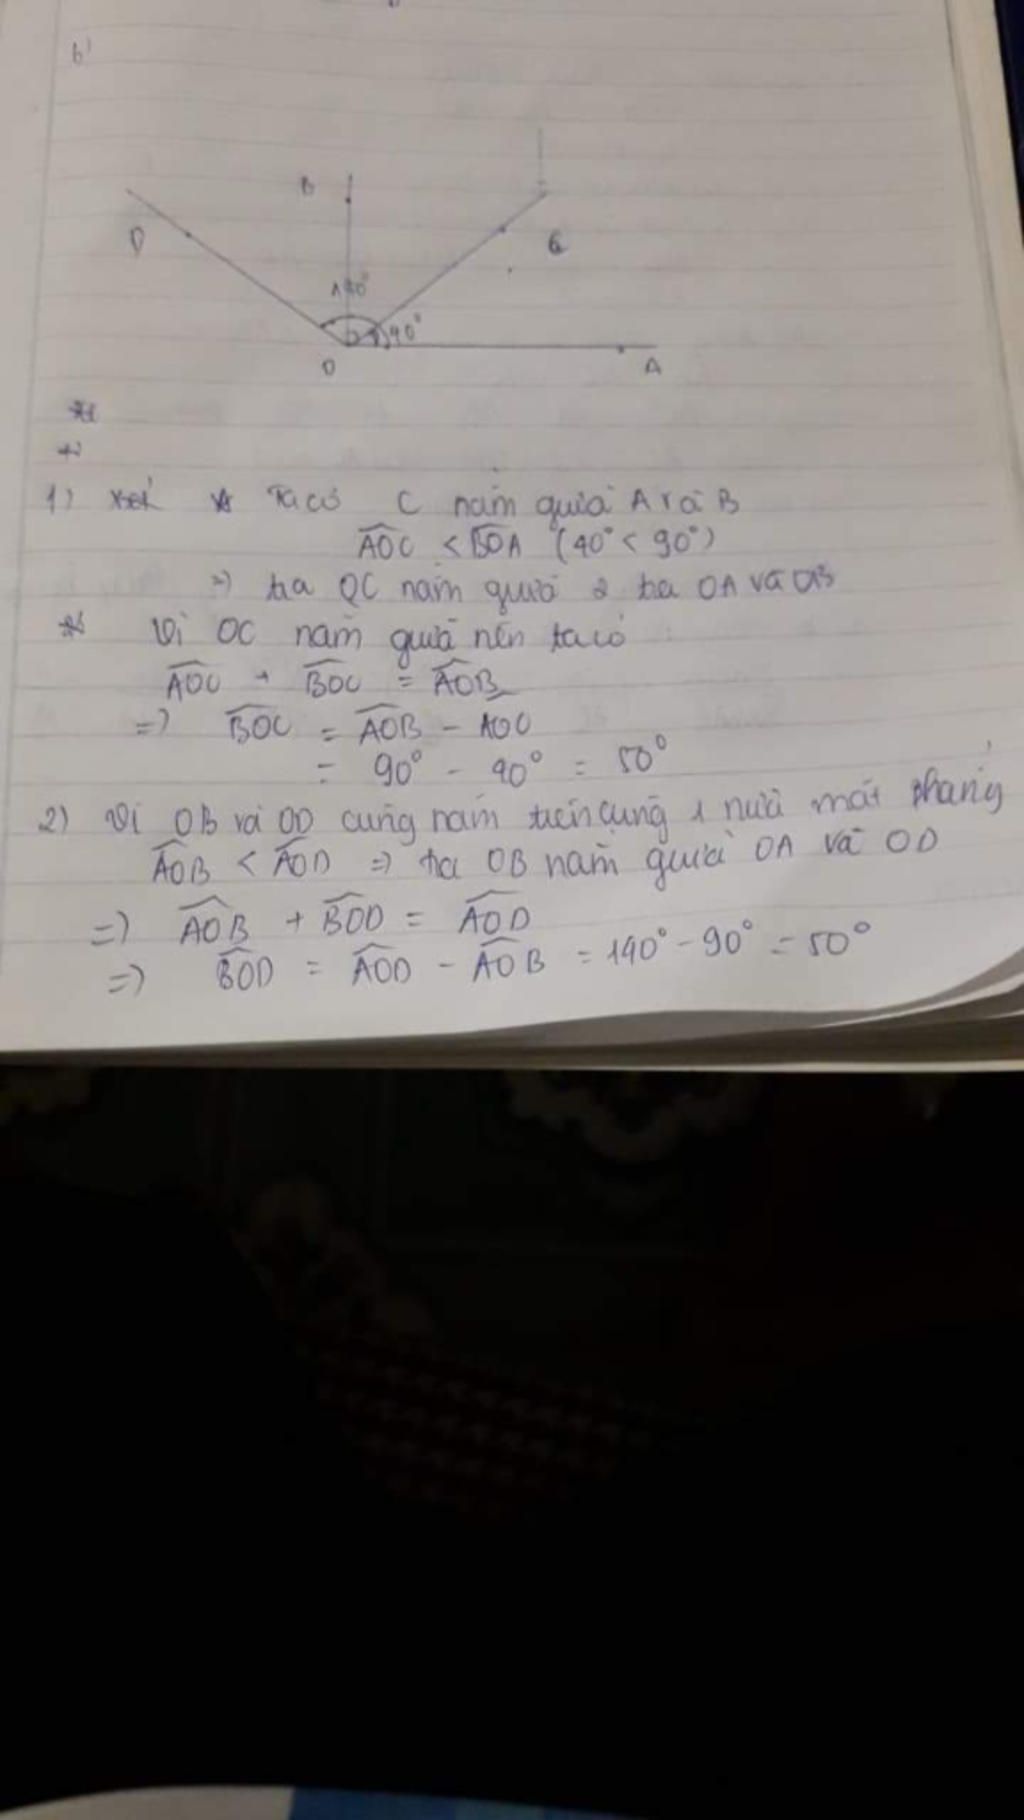 b)
B
D
C
140°
40°
O
A
1) Ta có C nằm giữa A và B
AOC < BOA (40° < 90°)
=> tia OC nằm giữa 2 tia OA và OB
Vì OC nằm giữa nên ta có
AOC + BOC = AOB
=> BOC = AOB - AOC
= 90° - 40° = 50°
2) Vì OB và OD cùng nằm trên cùng 1 nửa mặt phẳng
AOB < AOD => tia OB nằm giữa OA và OD
=> AOB + BOD = AOD
=> BOD = AOD - AOB = 140° - 90° = 50°